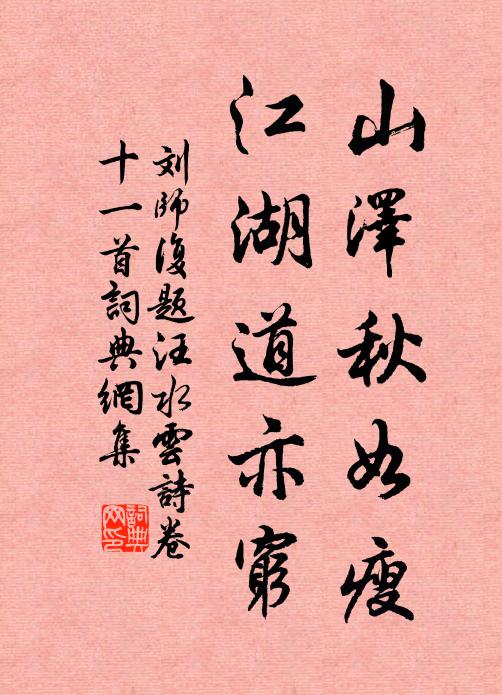 山澤秋如瘦
江湖道亦窮
刘師復题汪水雲詩卷
十一首詞典網集
詞典
网印